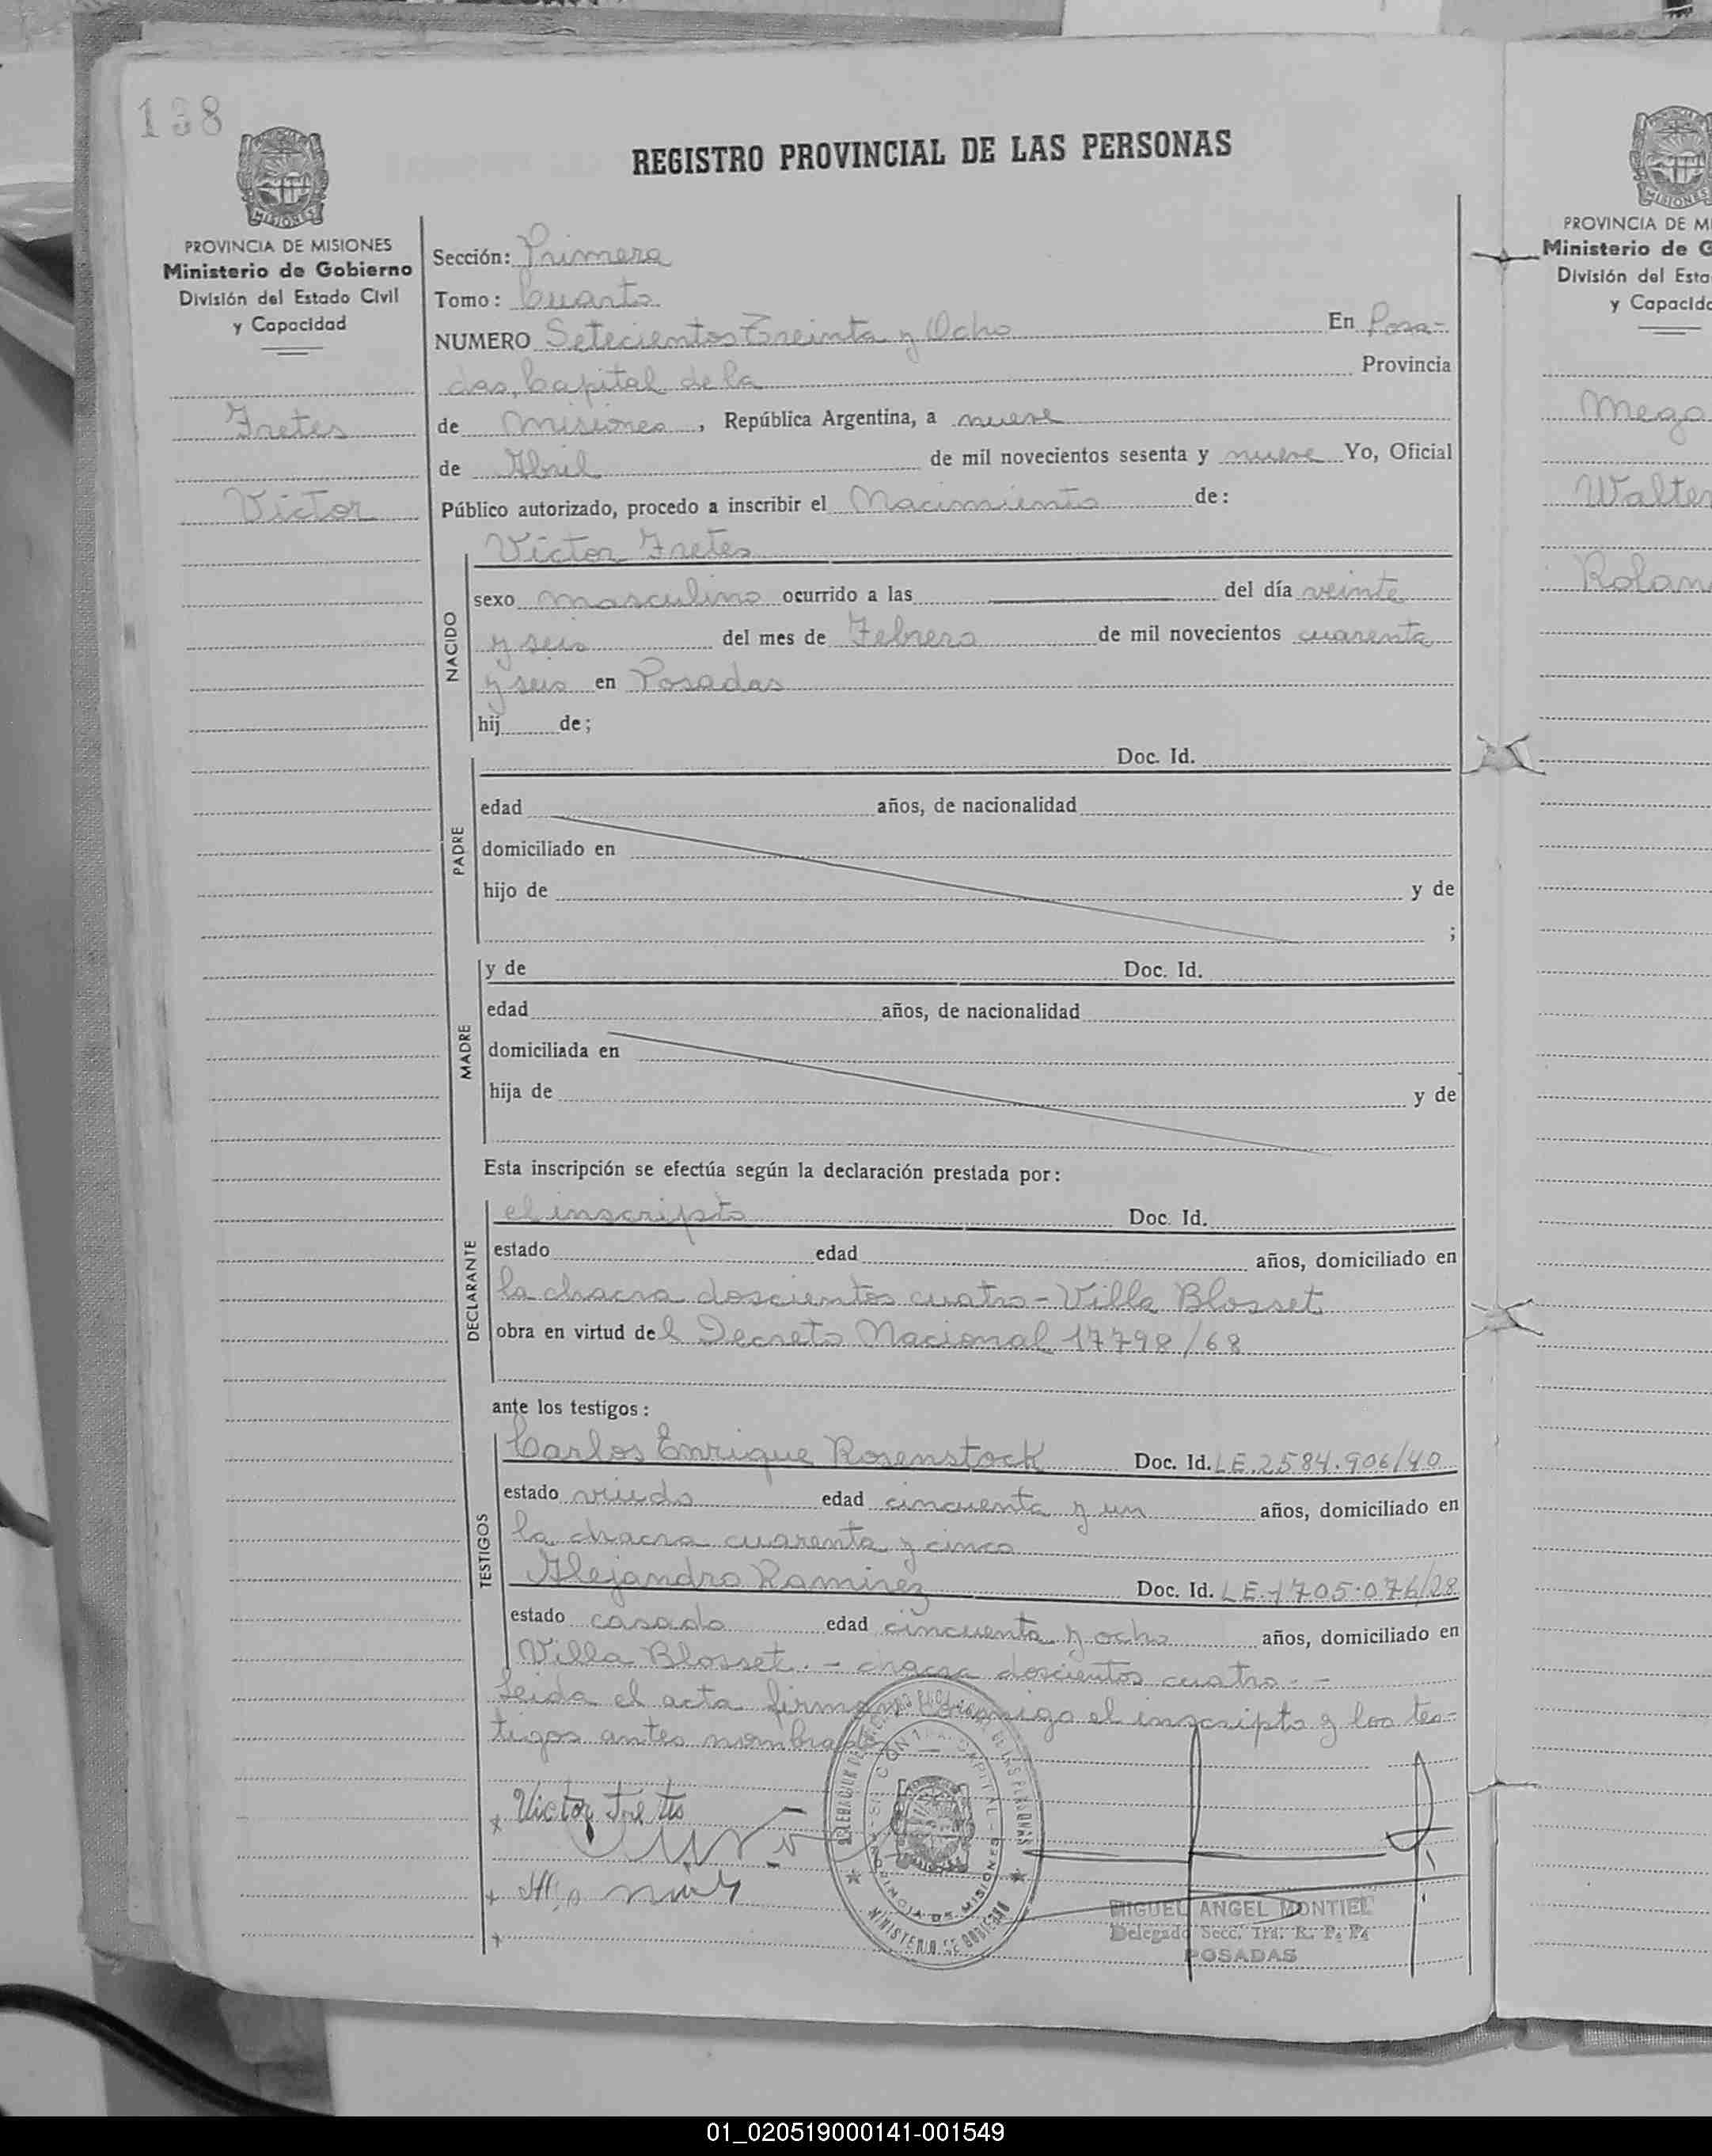 138
REGISTRO PROVINCIAL DE LAS PERSONAS
MISIONES
PROVINCIA DE MISIONES
Ministerio de Gobierno
División del Estado Civil
y Capacidad
Fretes
Victor
Sección: Primera
Tomo: Cuarto
NUMERO Setecientos Treinta y Ocho En Posa-
das, Capital de la Provincia
de Misiones, República Argentina, a nueve
de Abril de mil novecientos sesenta y nueve Yo, Oficial
Público autorizado, procedo a inscribir el Nacimiento de:
NACIDO
Victor Fretes
sexo masculino ocurrido a las del día veinte
y seis del mes de Febrero de mil novecientos cuarenta
y seis en Posadas
hij de;
PADRE
Doc. Id.
edad años, de nacionalidad
domiciliado en
hijo de y de
;
MADRE
y de Doc. Id.
edad años, de nacionalidad
domiciliada en
hija de y de
Esta inscripción se efectúa según la declaración prestada por:
DECLARANTE
el inscripto Doc. Id.
estado edad años, domiciliado en
la chacra doscientos cuatro - Villa Blosset
obra en virtud del Decreto Nacional 17798/68
ante los testigos:
TESTIGOS
Carlos Enrique Rosenstock Doc. Id. LE.2584.906/40
estado viudo edad cincuenta y un años, domiciliado en
la chacra cuarenta y cinco
Alejandro Ramirez Doc. Id. LE-1705.076/28
estado casado edad cincuenta y ocho años, domiciliado en
Villa Blosset. - chacra doscientos cuatro. -
Leida el acta firman conmigo el inscripto y los tes-
tigos antes nombrados
Victor Fretes
MINISTERIO DE GOBIERNO
PROVINCIA DE MISIONES
MIGUEL ANGEL MONTIEL
Delegado Secc. 1ra. R. P. P.
POSADAS
PROVINCIA DE M
Ministerio de G
División del Esta
y Capacida
Mego
Walter
Rolan
01_020519000141-001549